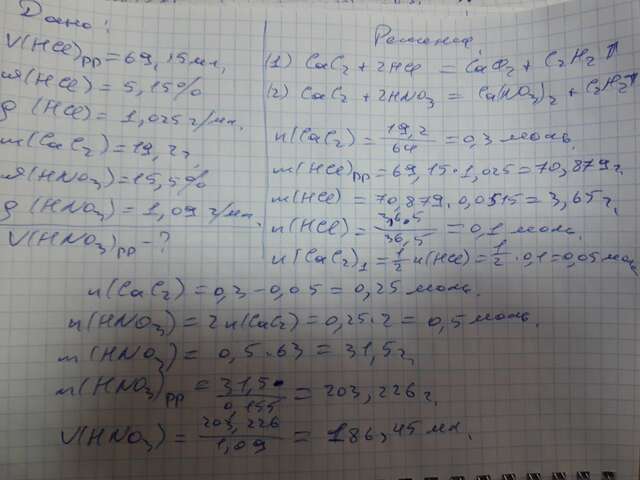 Дано:
V(HCl)рр = 69,15 мл,
ω(HCl) = 5,15%
ρ (HCl) = 1,025 г/мл.
m(CaC₂) = 19,2 г,
ω(HNO₃) = 15,5%
ρ (HNO₃) = 1,09 г/мл.
V(HNO₃)рр - ?
Решение.
(1) CaC₂ + 2HCl = CaCl₂ + C₂H₂↑
(2) CaC₂ + 2HNO₃ = Ca(NO₃)₂ + C₂H₂↑
n(CaC₂) = 19,2/64 = 0,3 моль.
m(HCl)рр = 69,15 · 1,025 = 70,879 г.
m(HCl) = 70,879 · 0,0515 = 3,65 г.
n(HCl) = 3,65/36,5 = 0,1 моль.
n(CaC₂)₁ = 1/2 n(HCl) = 1/2 · 0,1 = 0,05 моль
n(CaC₂) = 0,3 - 0,05 = 0,25 моль.
n(HNO₃) = 2n(CaC₂) = 0,25 · 2 = 0,5 моль.
m(HNO₃) = 0,5 · 63 = 31,5 г,
m(HNO₃)рр = 31,5/0,155 = 203,226 г.
V(HNO₃) = 203,226/1,09 = 186,45 мл.